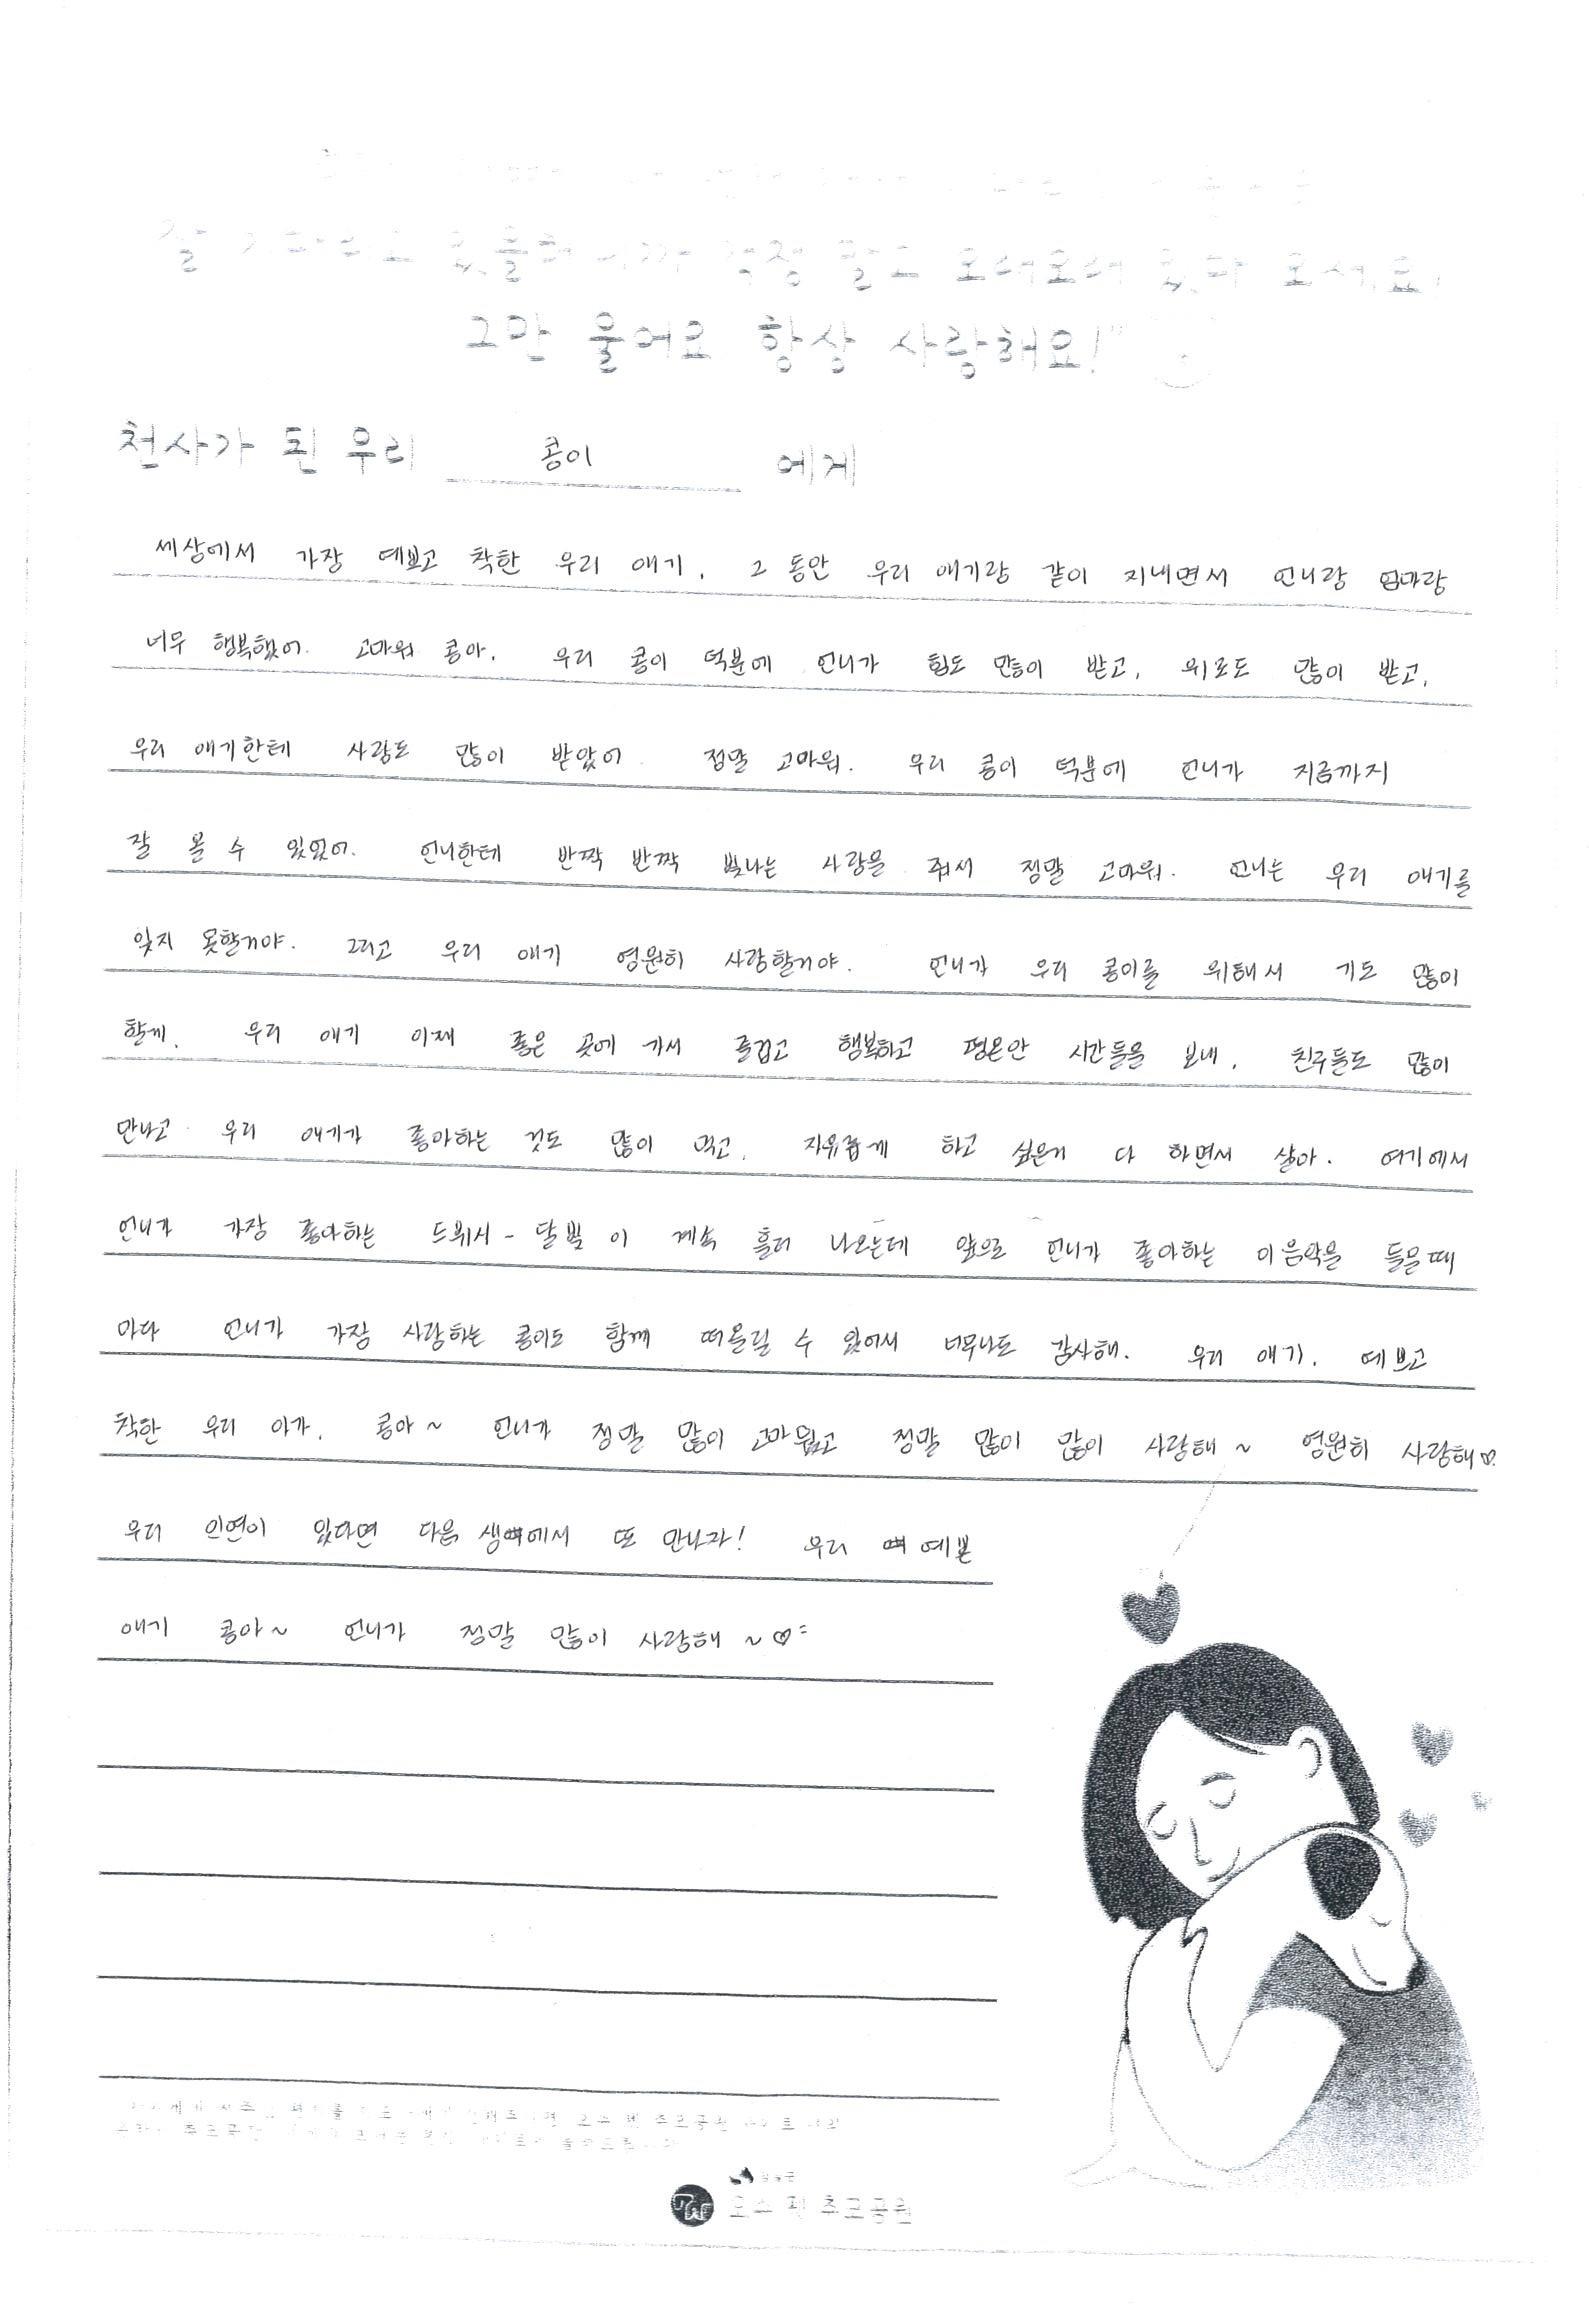 잘 기다리고 있을테니까 걱정 말고 오래오래 있다 오세요!
그만 울어요 항상 사랑해요!"
천사가 된 우리 콩이 에게
세상에서 가장 예쁘고 착한 우리 애기. 그 동안 우리 애기랑 같이 지내면서 언니랑 엄마랑
너무 행복했어. 고마워 콩아. 우리 콩이 덕분에 언니가 힘도 많이 받고, 위로도 많이 받고,
우리 애기한테 사랑도 많이 받았어. 정말 고마워. 우리 콩이 덕분에 언니가 지금까지
잘 올 수 있었어. 언니한테 반짝 반짝 빛나는 사랑을 줘서 정말 고마워. 언니는 우리 애기를
잊지 못할거야. 그리고 우리 애기 영원히 사랑할거야. 언니가 우리 콩이를 위해서 기도 많이
할게. 우리 애기 이제 좋은 곳에 가서 즐겁고 행복하고 평온안 시간들을 보내. 친구들도 많이
만나고 우리 애기가 좋아하는 것도 많이 먹고. 자유롭게 하고 싶은거 다 하면서 살아. 여기에서
언니가 가장 좋아하는 드뷔시-달빛 이 계속 흘러 나오는데 앞으로 언니가 좋아하는 이 음악을 들을때
마다 언니가 가장 사랑하는 콩이도 함께 떠올릴 수 있어서 너무나도 감사해. 우리 애기. 예쁘고
착한 우리 아가. 콩아~ 언니가 정말 많이 고마웠고 정말 많이 많이 사랑해~ 영원히 사랑해♡.
우리 인연이 있다면 다음 생에서 또 만나자! 우리 예쁜
애기 콩아~ 언니가 정말 많이 사랑해~♡
오수 펫 추모공원